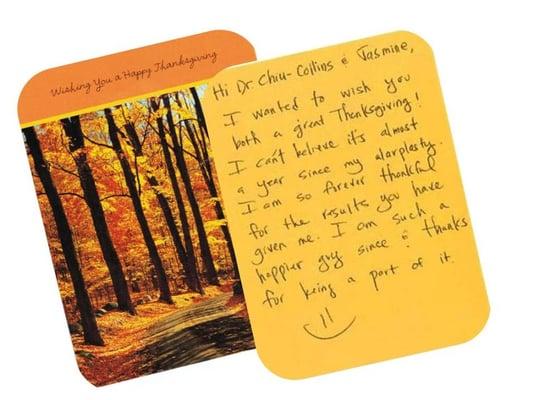 Wishing You a Happy Thanksgiving
Hi Dr. Chiu-Collins & Jasmine,
I wanted to wish you
both a great Thanksgiving!
I can't believe it's almost
a year since my alarplasty.
I am so forever thankful
for the results you have
given me. I am such a
happier guy since & thanks
for being a part of it.